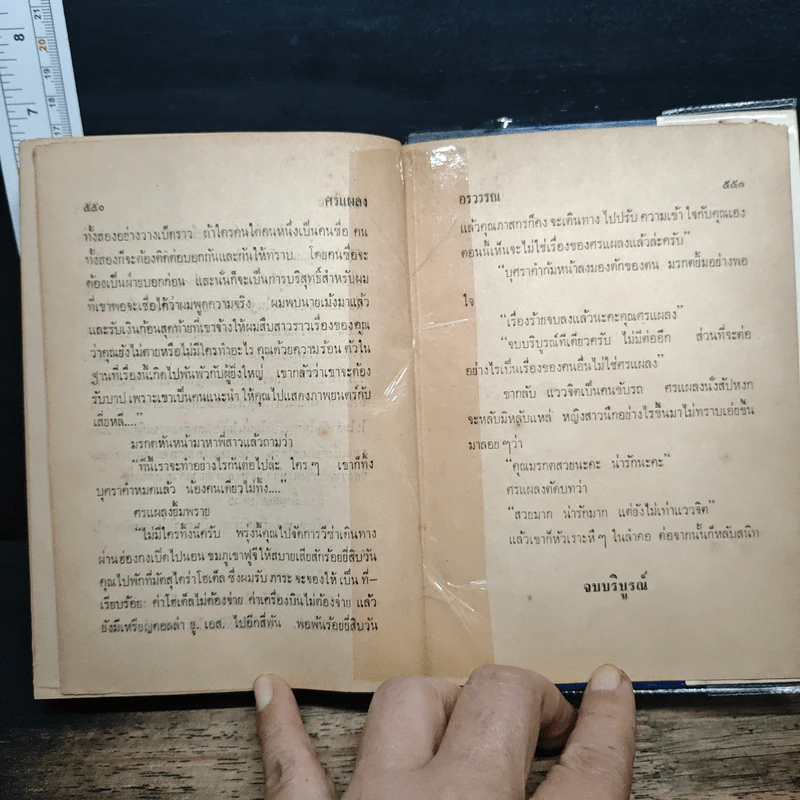 8
7
21
20
19
18
17
๕๕๐
ศรแผลง
ทั้งสองอย่างวางเบ็ดราว ถ้าใครคนใดคนหนึ่งเป็นคนซื้อ คน
ทั้งสองก็จะต้องติดต่อบอกกันและกันให้ทราบ โดยคนซื้อจะ
ต้องเป็นฝ่ายบอกก่อน และนั่นก็จะเป็นการบริสุทธิ์สำหรับผม
ที่เขาพอจะเชื่อได้ว่าผมพูดความจริง ผมพบนายเม้งมาแล้ว
และรับเงินก้อนสุดท้ายที่เขาจ้างให้ผมสืบสาวราวเรื่องของคุณ
ว่าคุณยังไม่ตายหรือไม่มีใครทำอะไร คุณด้วยความร้อน ตัวใน
ฐานที่เรื่องนี้เกิดไปพันพัวกับผู้ยิ่งใหญ่ เขากลัวว่าเขาจะต้อง
รับบาป เพราะเขาเป็นคนแนะนำ ให้คุณไปแสดงภาพยนตร์กับ
เสี่ยหลี....”
มรกตหันหน้ามาหาพี่สาวแล้วถามว่า
“ทีนี้เราจะทำอย่างไรกันต่อไปล่ะ ใคร ๆ เขาก็ทิ้ง
บุศราคำหมดแล้ว น้องคนเดียวไม่ทิ้ง....”
ศรแผลงยิ้มพราย
“ไม่มีใครทิ้งนี่ครับ พรุ่งนี้คุณไปจัดการวีซ่าเดินทาง
ผ่านฮ่องกงเปิดไปนอน ชมภูเขาฟูจีให้สบายเสียสักร้อยยี่สิบวัน
คุณไปพักที่มัตสุไดร่าโฮเต็ล ซึ่งผมรับ ภาระ จะจองให้ เป็น ที่—
เรียบร้อย ค่าโฮเต็ลไม่ต้องจ่าย ค่าเครื่องบินไม่ต้องจ่าย แล้ว
ยังมีเหรียญดอลล่า ยู. เอส. ไปอีกสี่พัน พอพันร้อยยี่สิบวัน
อรวรรณ
๕๕๑
แล้วคุณภาสกรก็คง จะเดินทาง ไปปรับ ความเข้า ใจกับคุณเอง
ตอนนี้เห็นจะไม่ใช่เรื่องของศรแผลงแล้วล่ะครับ”
“บุศราคำก้มหน้าลงมองตักของตน มรกตยิ้มอย่างพอ
ใจ
“เรื่องร้ายจบลงแล้วนะคะคุณศรแผลง”
“จบบริบูรณ์ทีเดียวครับ ไม่มีต่ออีก ส่วนที่จะต่อ
อย่างไรเป็นเรื่องของคนอื่นไม่ใช่ศรแผลง”
ขากลับ แววจิตเป็นคนขับรถ ศรแผลงนั่งสัปหงก
จะหลับมิหลับแหล่ หญิงสาวนึกอย่างไรขึ้นมาไม่ทราบเอ่ยขึ้น
มาลอย ๆ ว่า
“คุณมรกตสวยนะคะ น่ารักนะคะ”
ศรแผลงตัดบทว่า
“สวยมาก น่ารักมาก แต่ยังไม่เท่าแววจิต”
แล้วเขาก็หัวเราะหึ ๆ ในลำคอ ต่อจากนั้นก็หลับสนิท
จบบริบูรณ์